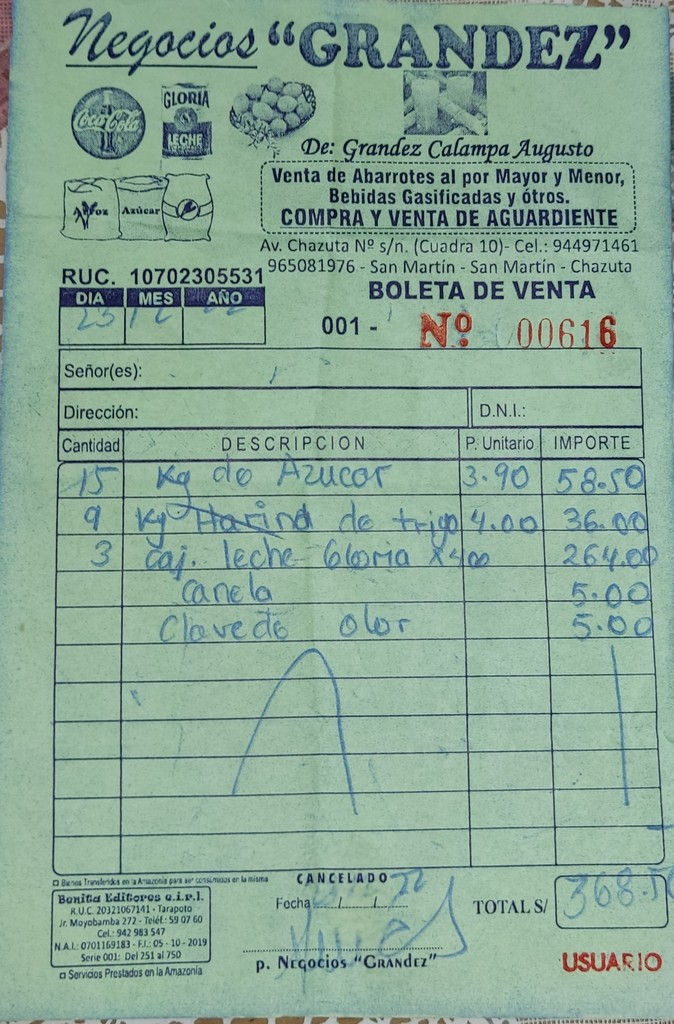 Negocios "GRANDEZ"
Coca-Cola
GLORIA
LECHE
De: Grandez Calampa Augusto
Arroz Azúcar
Venta de Abarrotes al por Mayor y Menor,
Bebidas Gasificadas y ótros.
COMPRA Y VENTA DE AGUARDIENTE
Av. Chazuta Nº s/n. (Cuadra 10)- Cel.: 944971461
965081976 - San Martín - San Martín - Chazuta
RUC. 10702305531
BOLETA DE VENTA
DIA MES AÑO
23 12 22
001 - Nº 00616
Señor(es):
Dirección: D.N.I.:
Cantidad DESCRIPCION P. Unitario IMPORTE
15 Kg de Azucar 3.90 58.50
9 Kg Harina de trigo 4.00 36.00
3 caj. leche Gloria x400 264.00
Canela 5.00
Clavo de olor 5.00
Bienes Transferidos en la Amazonía para ser consumidos en la misma
CANCELADO
Fecha / / 22
TOTAL S/ 368.50
Benita Editores e.i.r.l.
R.U.C. 20321067141 - Tarapoto
Jr. Moyobamba 272 - Teléf.: 59 07 60
Cel.: 942 983 547
N.A.I.: 0701169183 - F.I.: 05 - 10 - 2019
Serie 001: Del 251 al 750
Servicios Prestados en la Amazonía
p. Negocios "Grandez"
USUARIO